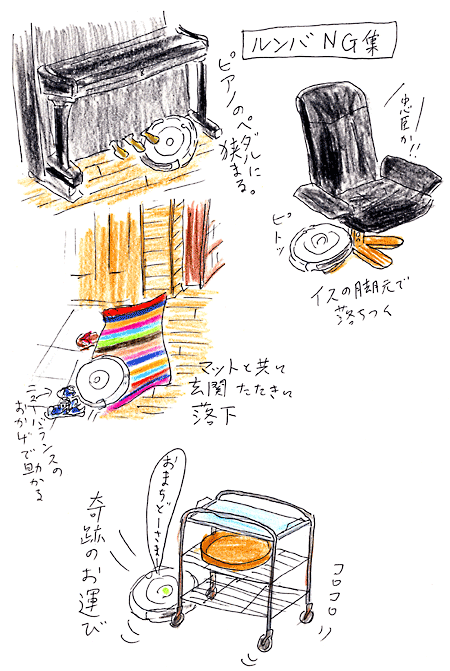 ルンバ NG集
ピアノのペダルに
狭まる。
忠臣か!!
ピトッ
イスの脚元で
落ちつく
マットと共に
玄関たたきに
落下
ニューバランスの
おかげで助かる
おまちどーさま
奇跡のお運び
コロコロ